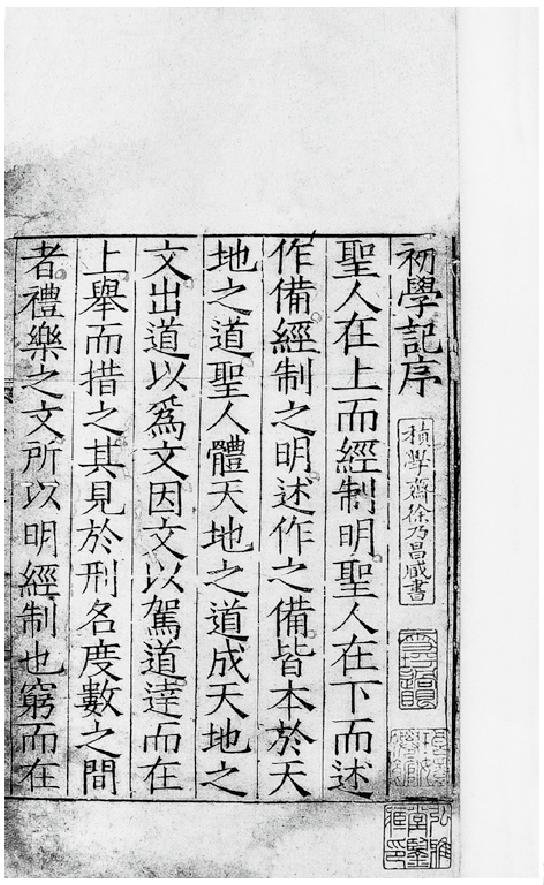 初學記序
積學齋徐乃昌藏書
聖人在上而經制明聖人在下而述
作備經制之明述作之備皆本於天
地之道聖人體天地之道成天地之
文出道以爲文因文以駕道達而在
上舉而措之其見於刑名度數之間
者禮樂之文所以明經制也窮而在